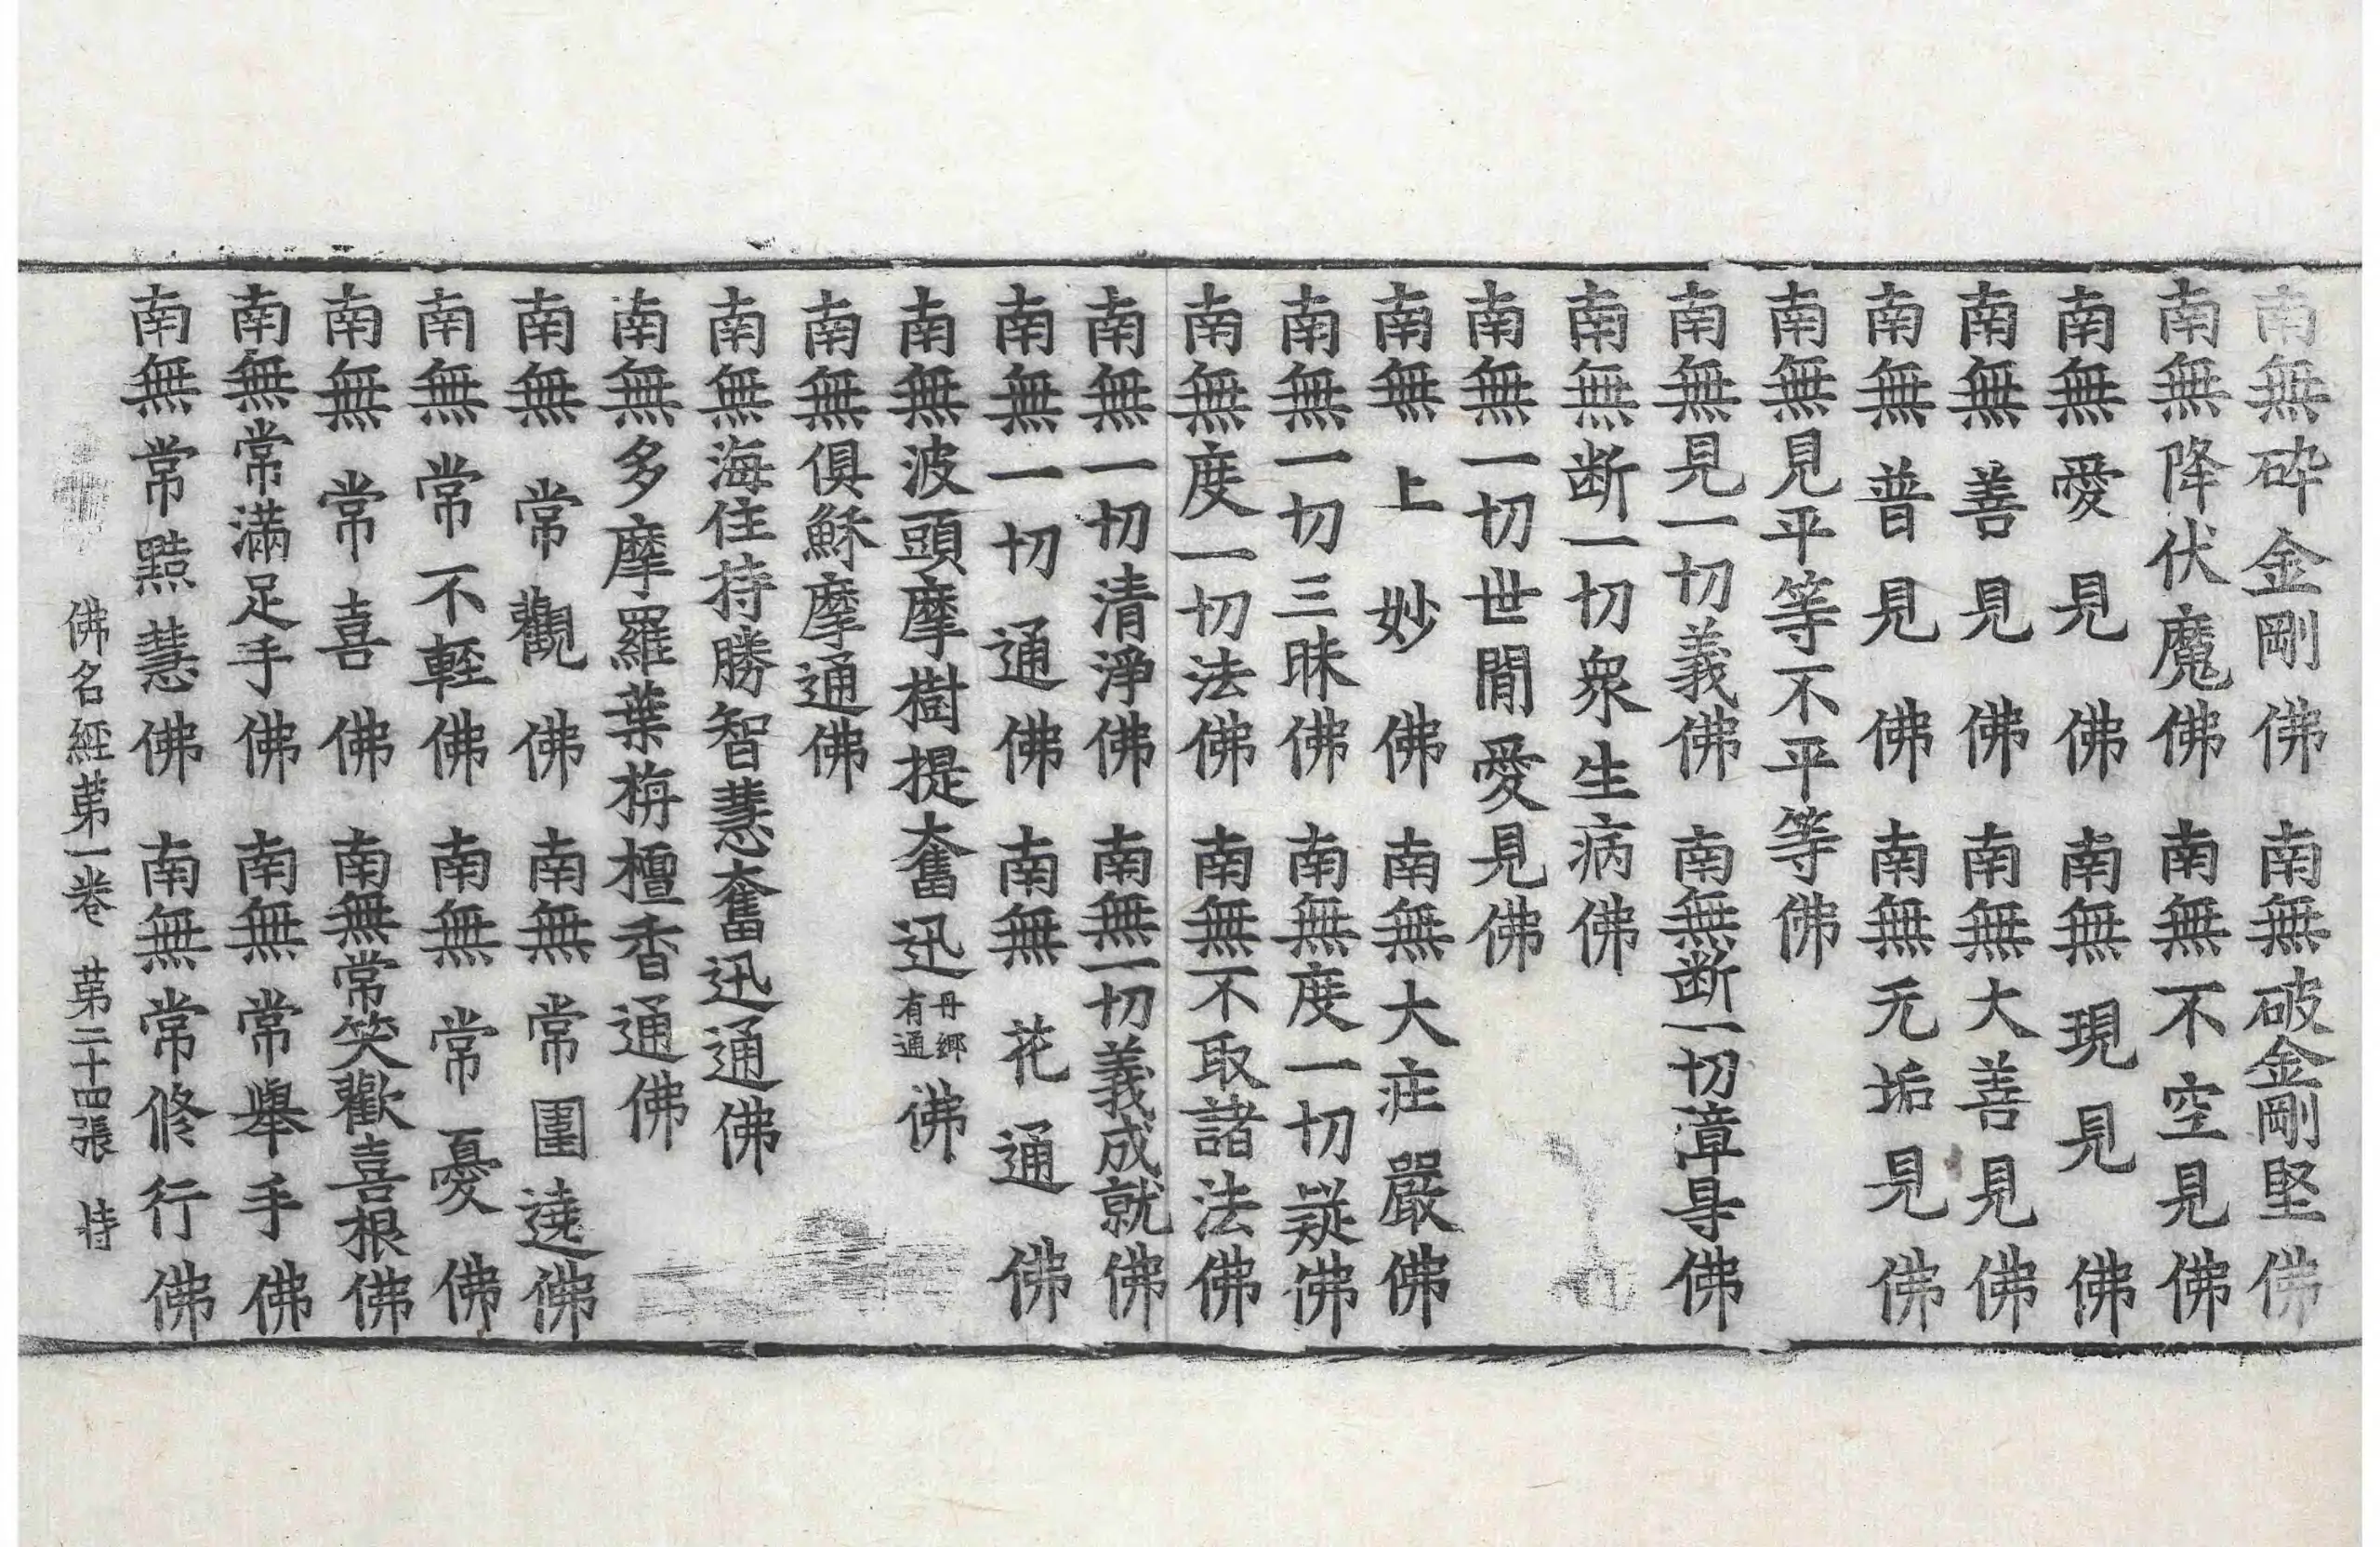 南無碎金剛佛 南無破金剛堅佛
南無降伏魔佛 南無不空見佛
南無愛見佛 南無現見佛
南無善見佛 南無大善見佛
南無普見佛 南無无垢見佛
南無見平等不平等佛
南無見一切義佛 南無断一切㢓㝵佛
南無断一切衆生病佛
南無一切世閒愛見佛
南無上妙佛 南無大庄嚴佛
南無一切三昧佛 南無度一切疑佛
南無度一切法佛 南無不取諸法佛
南無一切清淨佛 南無一切義成就佛
南無一切通佛 南無花通佛
南無波頭摩樹提奮迅丹鄉有通佛
南無俱穌摩通佛
南無海住持勝智慧奮迅通佛
南無多摩羅葉栴檀香通佛
南無常觀佛 南無常圍遶佛
南無常不輕佛 南無常憂佛
南無常喜佛 南無常笑歡喜根佛
南無常滿足手佛 南無常舉手佛
南無常黠慧佛 南無常修行佛
佛名經苐一卷 苐二十四張 持